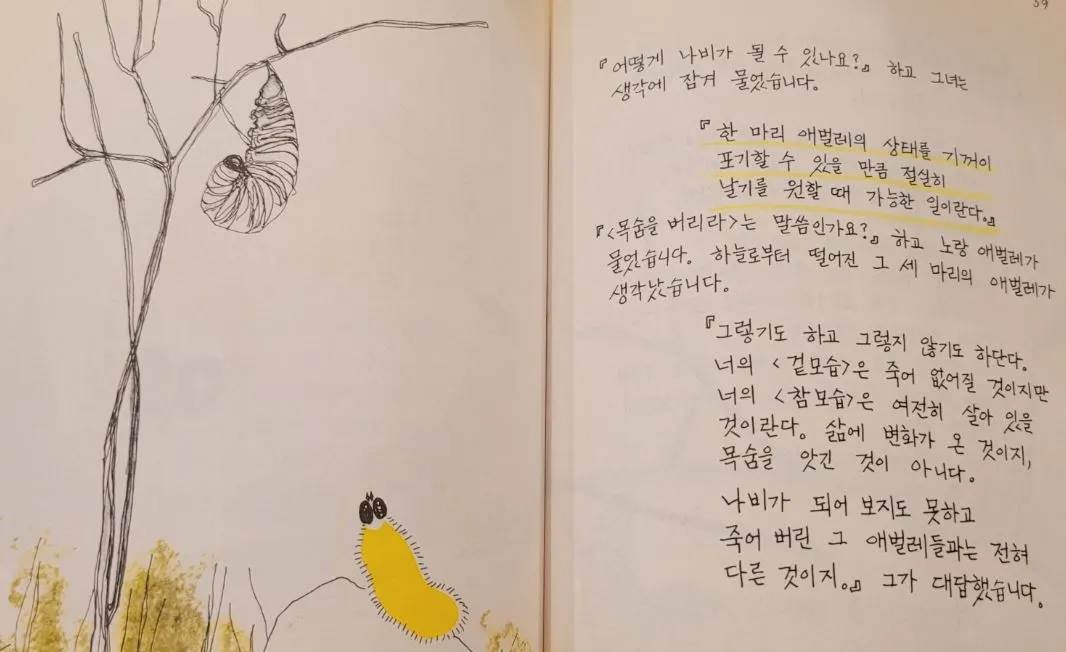 59
『어떻게 나비가 될 수 있나요?』 하고 그녀는
생각에 잡겨 물었습니다.
『한 마리 애벌레의 상태를 기꺼이
포기할 수 있을 만큼 절실히
날기를 원할 때 가능한 일이란다.』
『<목숨을 버리라>는 말씀인가요?』 하고 노랑 애벌레가
물었습니다. 하늘로부터 떨어진 그 세 마리의 애벌레가
생각났습니다.
『그렇기도 하고 그렇지 않기도 하단다.
너의 <겉모습>은 죽어 없어질 것이지만
너의 <참모습>은 여전히 살아 있을
것이란다. 삶에 변화가 온 것이지,
목숨을 앗긴 것이 아니다.
나비가 되어 보지도 못하고
죽어 버린 그 애벌레들과는 전혀
다른 것이지.』 그가 대답했습니다.